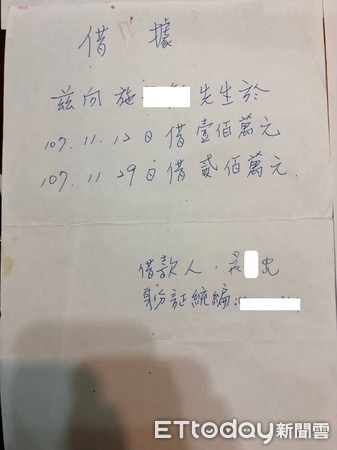 借據
茲向施 先生於
107.11.12日借壹佰萬元
107.11 29日借貳佰萬元.
借款人: 忠
身分証統編:
ETtoday新聞雲